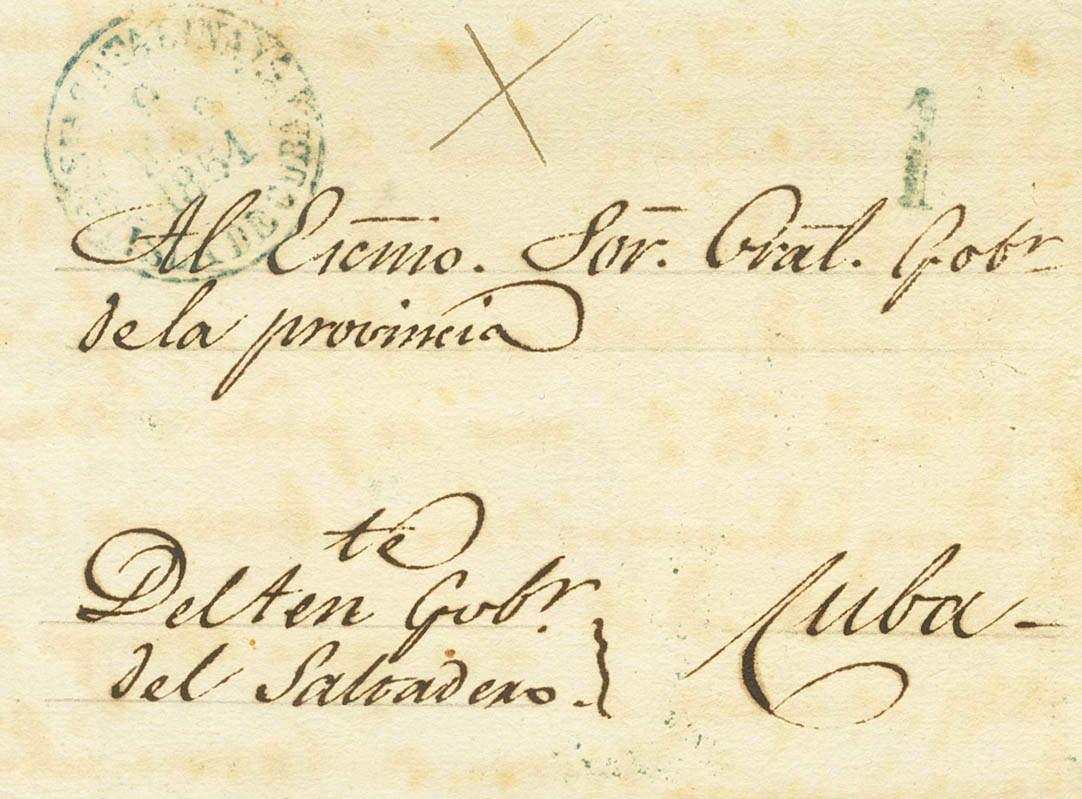 1851
1
DE CUBA
Al Escmo. Sor. Gral. Gobr
de la provincia
Del ten te Gobr.
del Saltadero.
Cuba